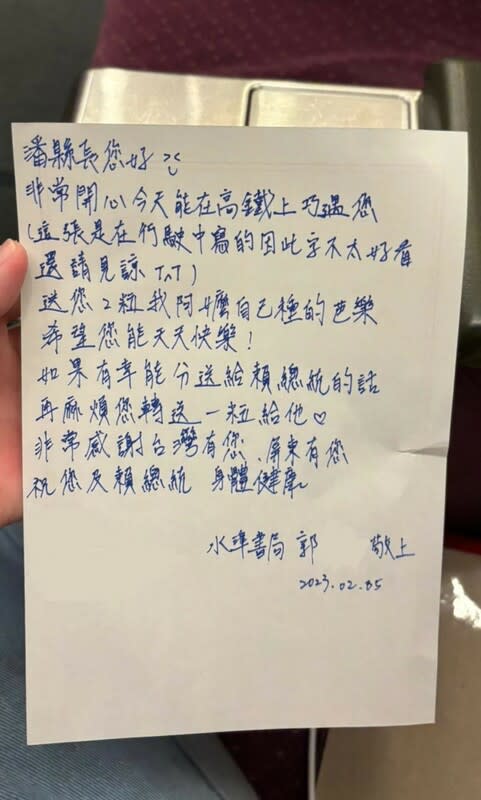 潘縣長您好
非常開心今天能在高鐵上巧遇您
(這張是在行駛中寫的因此字不太好看
還請見諒 TAT)
送您2粒我阿嬤自己種的芭樂
希望您能天天快樂!
如果有幸能分送給賴總統的話
再麻煩您轉送一粒給他♡
非常感謝台灣有您、屏東有您
祝您及賴總統 身體健康
水準書局 郭 敬上
2023.02.05